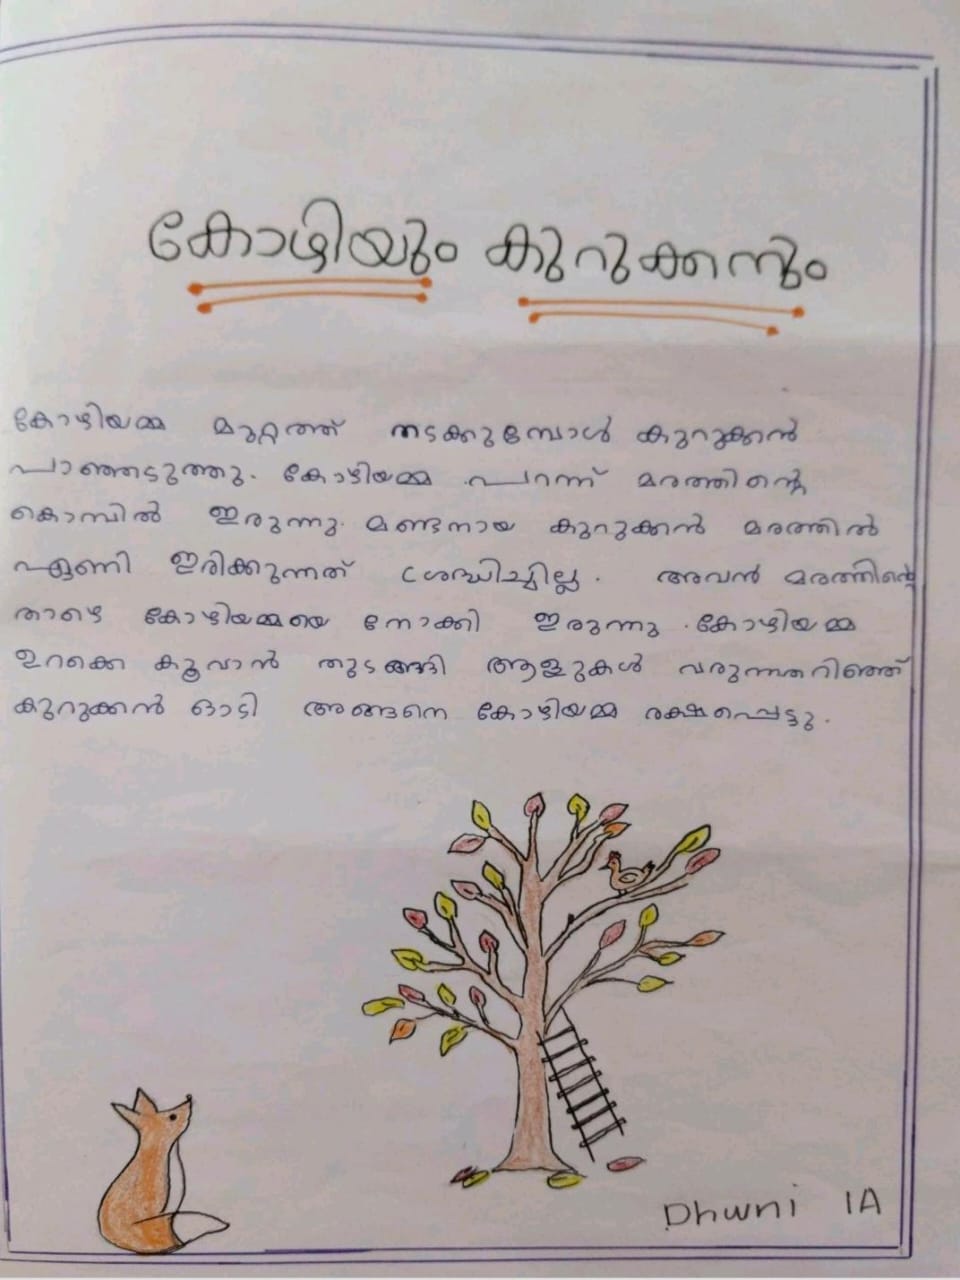 കോഴിയും കുറുക്കനും
കോഴിയമ്മ മുറ്റത്ത് നടക്കുമ്പോൾ കുറുക്കൻ
പാഞ്ഞടുത്തു. കോഴിയമ്മ പറന്ന് മരത്തിന്റെ
കൊമ്പിൽ ഇരുന്നു. മണ്ടനായ കുറുക്കൻ മരത്തിൽ
ഏണി ഇരിക്കുന്നത് ശ്രദ്ധിച്ചില്ല. അവൻ മരത്തിന്റെ
താഴെ കോഴിയമ്മയെ നോക്കി ഇരുന്നു. കോഴിയമ്മ
ഉറക്കെ കൂവാൻ തുടങ്ങി ആളുകൾ വരുന്നതറിഞ്ഞ്
കുറുക്കൻ ഓടി അങ്ങനെ കോഴിയമ്മ രക്ഷപ്പെട്ടു.
Dhwni 1A